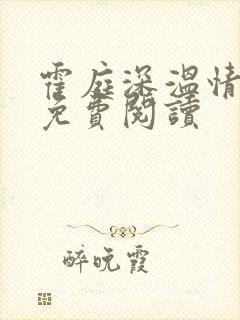 霍庭深溫情
免費閱讀
醉晚霞